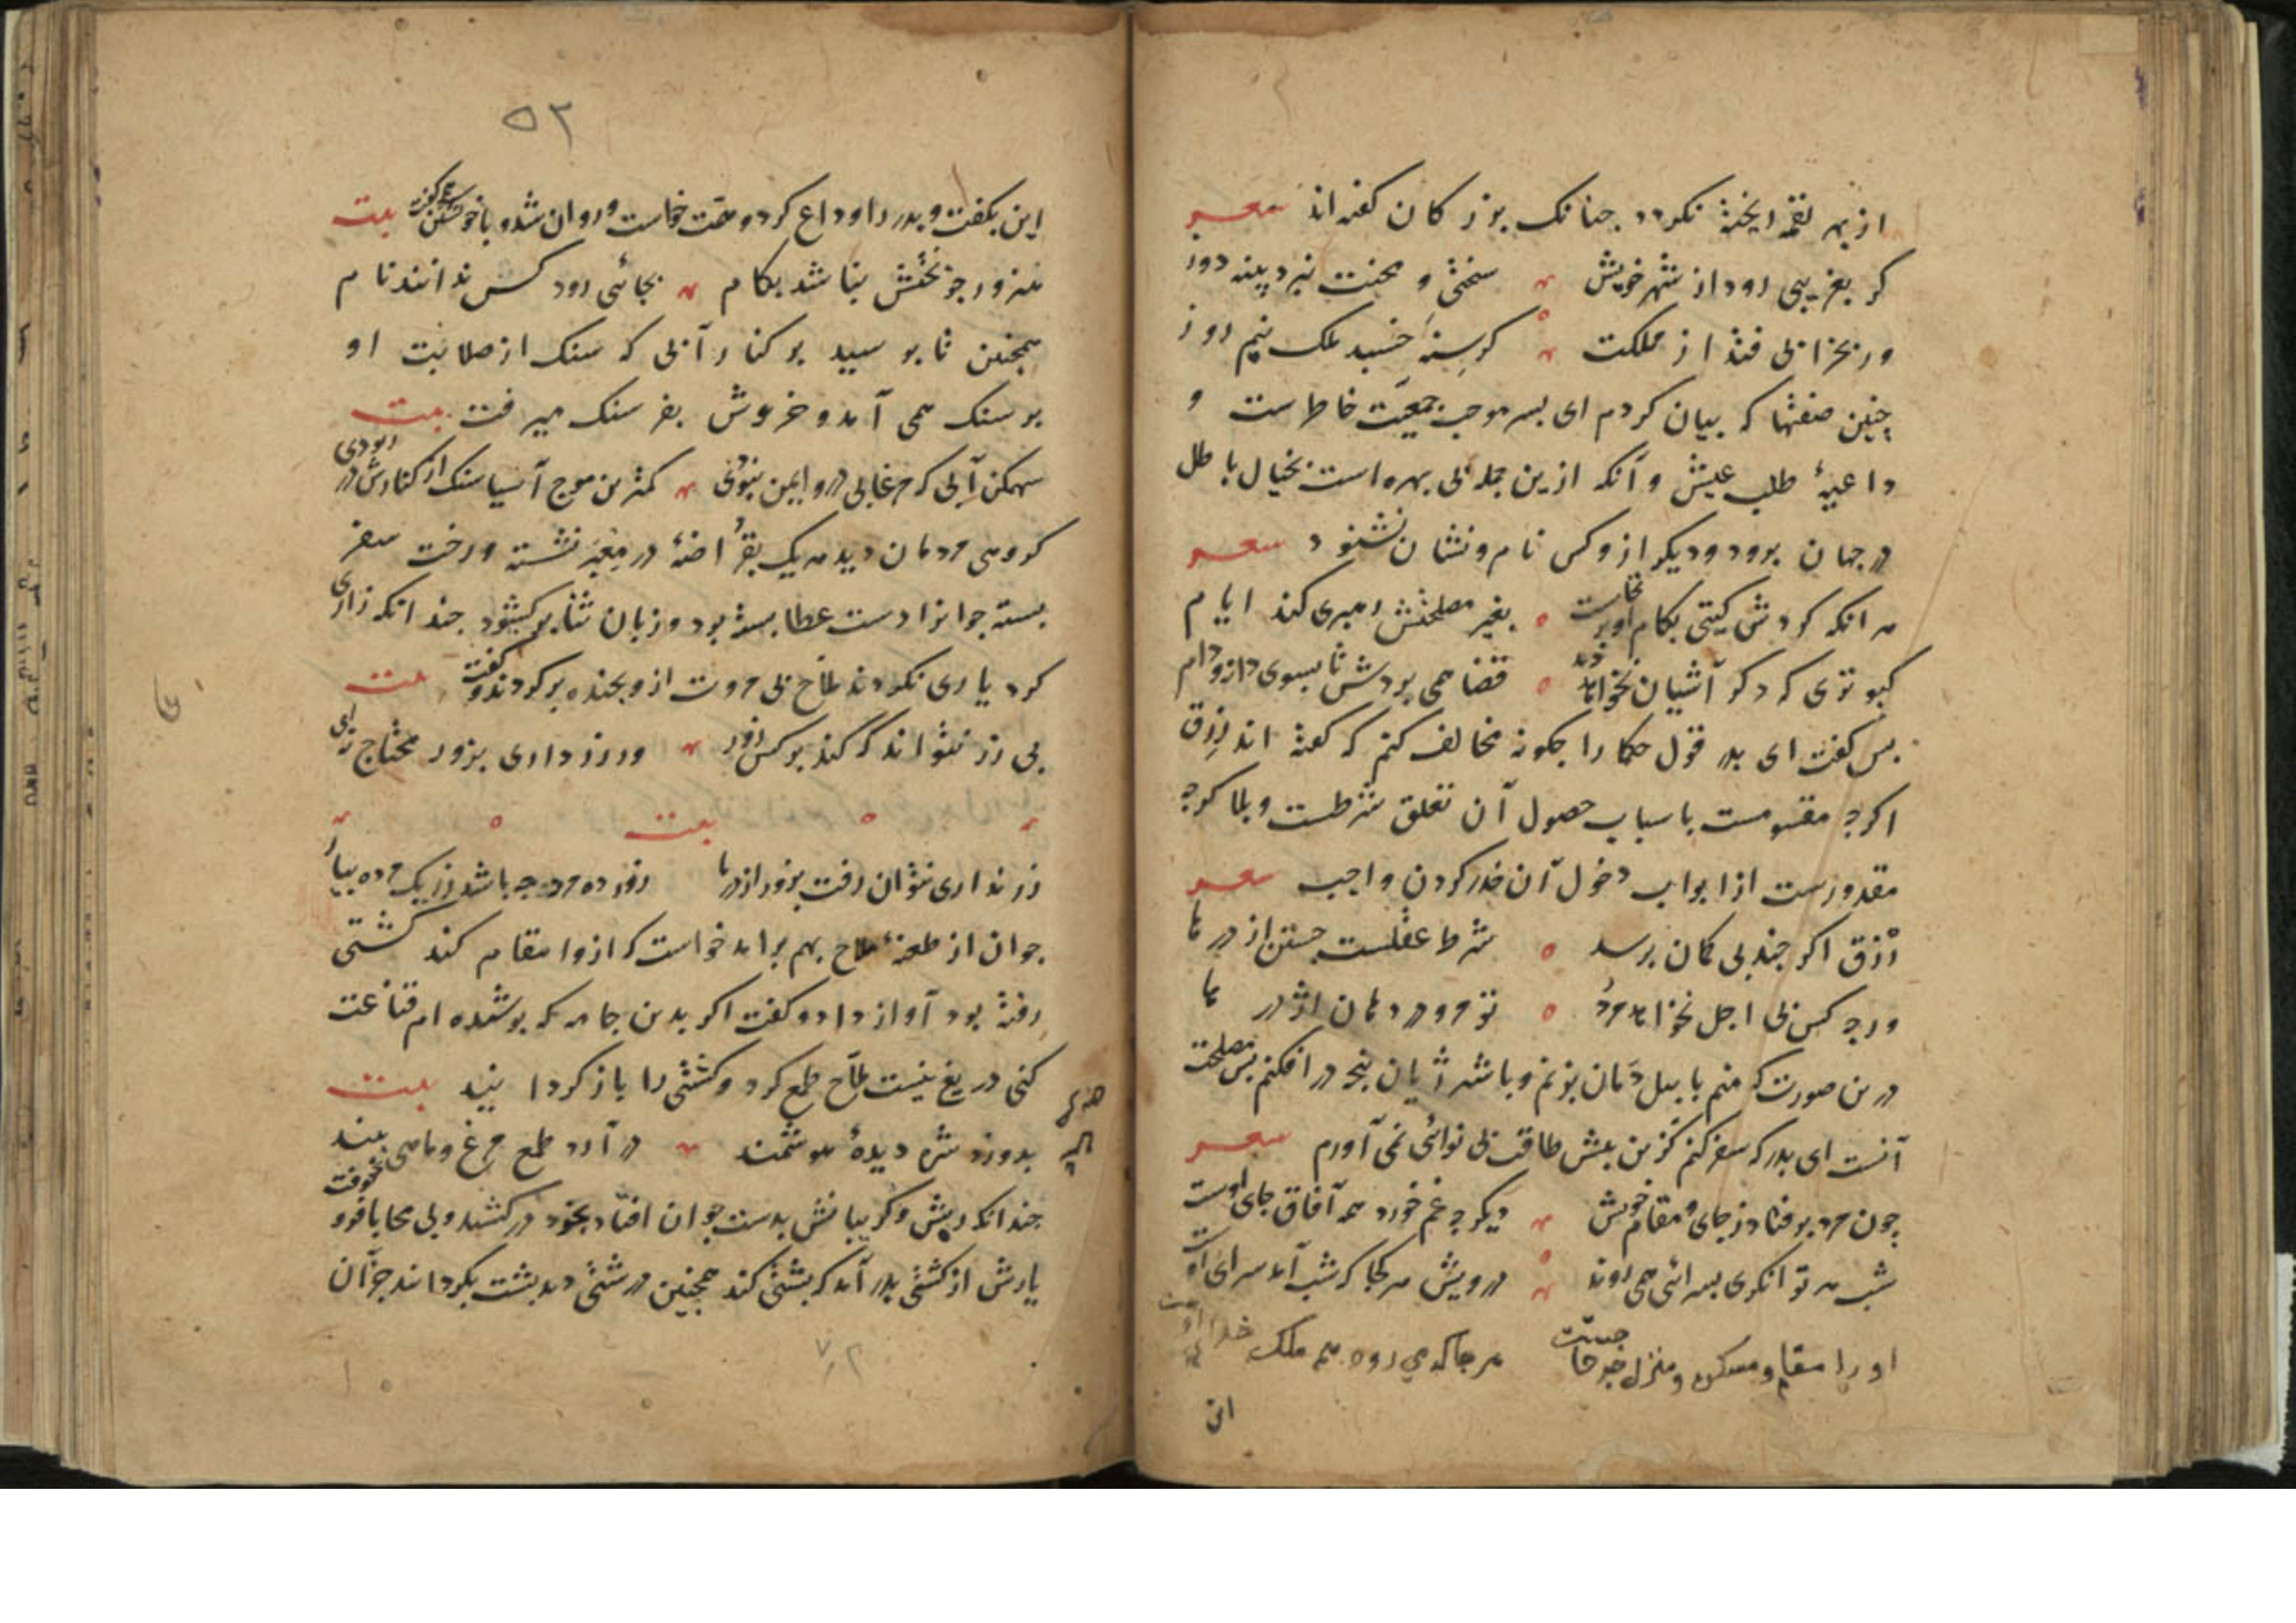 از بهر لقمه ریخته نکردد جنانک بزرکان کفته اند شعر
کر بغریبی رود از شهر خویش سختی و محنت نبرد پینه دوز
ور بخرابی فتد از مملکت کرسنه خسبد ملک نیم روز
چنین صفتها که بیان کردم ای بسر موجب جمعیت خاطرست و
داعیهٔ طلب عیش و آنکه ازین جمله بی بهره است بخیال باطل
در جهان برود و دیکر ازو کس نام و نشان نشنود شعر
هر انکه کردش کیتی بکام او برخاست بغیر مصلحتش رهبری کند ایام
کبوتری که دکر آشیان نخواهد دید قضا همی بردش تا بسوی دانه و دام
بس کفت ای بدر قول حکما را جکونه مخالف کنم که کفته اند رزق
اکرچه مقسومست باسباب حصول آن تعلق شرطست و بلا کرچه
مقدورست از ابواب دخول آن حذر کردن واجب شعر
رزق اکر چند بی کمان برسد شرط عقلست جستن از درها
ورچه کس بی اجل نخواهد مرد تو مرو در دهان اژدرها
درین صورت که منم با بیل دمان بزنم و با شیر ژیان بنجه در افکنم بس مصلحت
آنست ای بدر که سفر کنم کزین بیش طاقت بی نوائی نمی آورم شعر
چون مرد برفتاد ز جای و مقام خویش دیکر چه غم خورد همه آفاق جای اوست
شب هر توانکری بسرائی همی روند درویش هر کجا که شب آمد سرای اوست
او را مقام و مسکن و منزل هر جا که می رود همه ملک خدای اوست
این
۵۲
این بکفت و بدر را وداع کرد و همت خواست و روان شد و با خویشتن کفت بیت
هنرور جو بختش نباشد بکام بجائی رود کش ندانند نام
همجنین تا برسید بر کنار آبی که سنک از صلابت او
بر سنک همی آمد و خروش بفرسنک میرفت بیت
سهمکن آبی که مرغابی درو ایمن نبودی کمترین موج آسیا سنک از کنارش در ربودی
کروهی مردمان دید هر یک بقراضهٔ در معبر نشسته و رخت سفر
بسته جوانرا دست عطا بسته بود و زبان ثنا برکشود جند انکه زاری
کرد یاری نکردند ملاح بی مروت ازو بخنده برکردید و کفت بیت
بی زر نتواند که کند بر کس زور ور زر داری بزور محتاج نهٔ
بیت
زر نداری نتوان رفت بزور از دریا زور ده مرده چه باشد زر یک مرده بیار
جوان از طعنهٔ ملاح بهم برآمد خواست که ازو انتقام کند کشتی
رفته بود آواز داد و کفت اکر بدین جامه که بوشیده ام قناعت
کنی دریغ نیست ملاح طمع کرد و کشتی را باز کردانید بیت
بدوزد شره دیدهٔ هوشمند در آرد طمع مرغ و ماهی ببند
جندانکه ریش و کریبانش بدست جوان افتاد بخود در کشید و بی محابا فرو کوفت
یارش از کشتی بدر آمد که بشتی کند همجنین درشتی دید بشت بکردانید جز آن